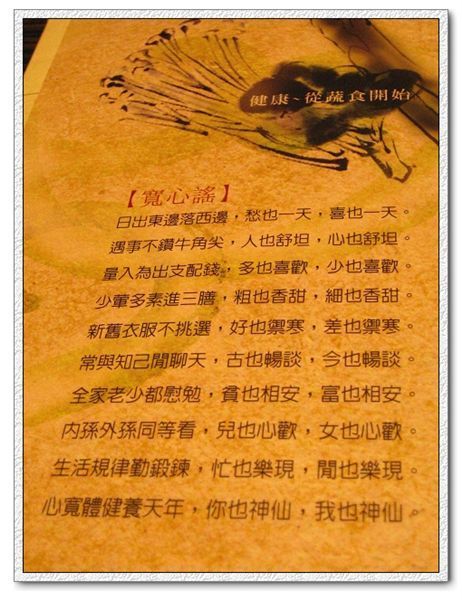 健康~從蔬食開始
【寬心謠】
日出東邊落西邊，愁也一天，喜也一天。
遇事不鑽牛角尖，人也舒坦，心也舒坦。
量入為出支配錢，多也喜歡，少也喜歡。
少葷多素進三膳，粗也香甜，細也香甜。
新舊衣服不挑選，好也禦寒，差也禦寒。
常與知己閒聊天，古也暢談，今也暢談。
全家老少都慰勉，貧也相安，富也相安。
內孫外孫同等看，兒也心歡，女也心歡。
生活規律勤鍛鍊，忙也樂現，閒也樂現。
心寬體健養天年，你也神仙，我也神仙。